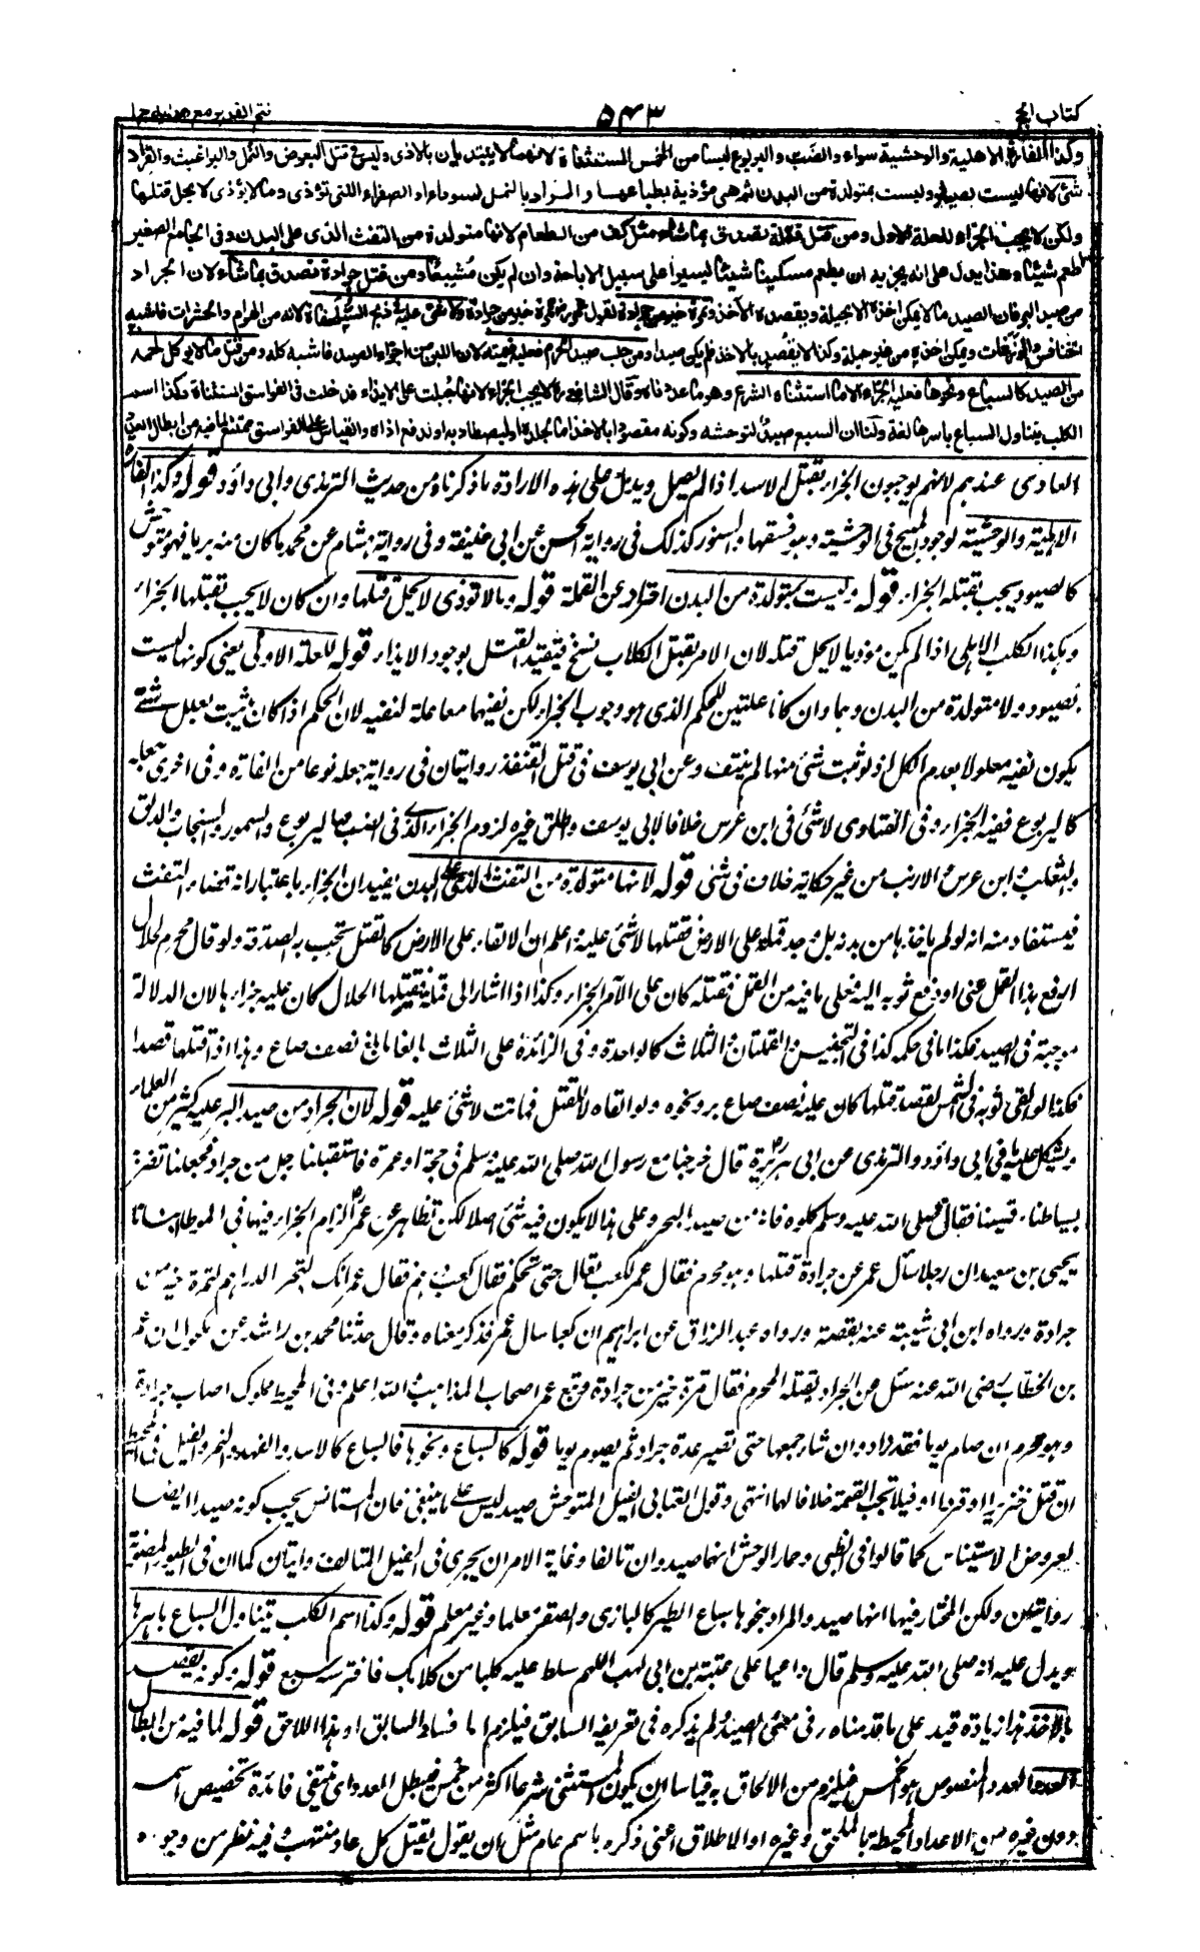 كتاب الحج
٥٤٣
فتح القدير مع هدايه ج ١
وكذا الفارة الاهلية والوحشية سواء والضب واليربوع ليسا من الخمس المستثناة لانهما لا يبتديان بالاذى وليس فى قتل البعوض والنمل والبراغيث والقراد
شئ لانها ليست بصيود وليست بمتولدة من البدن ثم هى مؤذية بطباعها والمراد بالنمل السوداء او الصفراء اللتى تؤذى وما لا يؤذى لا يحل قتلها
ولكن لا يجب الجزاء للعلة الاولى ومن قتل قملة تصدق بما شاء مثل كف من الطعام لانها متولدة من التفث الذى على البدن وفى الجامع الصغير
اطعم شيئا وهذا يدل على انه يجزيه ان يطعم مسكينا شيئا يسيرا على سبيل الاباحة وان لم يكن مشبعا ومن قتل جرادة تصدق بما شاء لان الجراد
من صيد البر فان الصيد ما لا يمكن اخذه الا بحيلة ويقصده الآخذ وتمرة خير من جرادة لقول عمر رض تمرة خير من جرادة ولا شئ عليه فى ذبح السلحفاة لانه من الهوام والحشرات فاشبه
الخنافس والوزغات ويمكن اخذه من غير حيلة وكذا لا يقصد بالاخذ فلم يكن صيدا ومن حلب صيد الحرم فعليه قيمته لان اللبن من اجزاء الصيد فاشبه كله ومن قتل ما لا يوكل لحمه
من الصيد كالسباع ونحوها فعليه الجزاء الا ما استثناه الشرع وهو ما عددناه وقال الشافعى رح لا يجب الجزاء لانها جبلت على الايذاء فدخلت فى الفواسق المستثناة وكذا اسم
الكلب يتناول السباع باسرها لغة ولنا ان السبع صيد لتوحشه وكونه مقصودا بالاخذ اما لجلده او ليصطاد به او لدفع اذاه والقياس على الفواسق ممتنع لما فيه من ابطال العدد
العادى عندهم لانهم يوجبون الجزاء بقتل الاسد اذا لم يصل ويدل على هذه الارادة ما ذكرناه من حديث الترمذى وابى داؤد قوله وكذا الفارة
الاهلية والوحشية لوجود المبيح فى الوحشية وهو فسقها والسنور كذلك فى رواية الحسن عن ابى حنيفة وفى رواية هشام عن محمد ما كان منه بريا فهو متوحش
كالصيود يجب بقتله الجزاء قوله وليست بمتولدة من البدن احتراز عن القملة قوله وما لا تؤذى لا يحل قتلها وان كان لا يجب بقتلها الجزاء
وهكذا الكلب الاهلى اذا لم يكن موذيا لا يحل قتله لان الامر بقتل الكلاب نسخ فيتقيد القتل بوجود الايذاء قوله للعلة الاولى يعنى كونها ليست
بصيود ولا متولدة من البدن وهما وان كانا علتين للحكم الذى هو وجوب الجزاء لكن نفيهما معا علة لنفيه لان الحكم اذا كان يثبت بعلل شتى
يكون نفيه معلولا بعدم الكل اذ لو ثبت شئ منها لم ينتف وعن ابى يوسف فى قتل القنفذ روايتان فى رواية جعله نوعا من الفارة وفى اخرى جعله
كاليربوع ففيه الجزاء وفى الفتاوى لا شئ فى ابن عرس خلافا لابى يوسف واطلق غيره لزوم الجزاء فى الضب واليربوع والسمور والسنجاب والدلق
والثعلب وابن عرس والارنب من غير حكاية خلاف فى شئ قوله لانها متولدة من التفث الذى على البدن يفيد ان الجزاء باعتبار انه قضاء التفث
فيستفاد منه انه لو لم ياخذها من بدنه بل وجد قملة على الارض فقتلها لا شئ عليه واعلم ان الالقاء على الارض كالقتل تجب به الصدقة ولو قال محرم لحلال
ارفع هذا القمل عنى او دفع ثوبه اليه ففلى ما فيه من القمل فقتله كان على الآمر الجزاء وكذا اذا اشار الى قملة فقتلها الحلال كان عليه جزاءها لان الدلالة
موجبة فى الصيد فكذا ما فى حكمه كذا فى التجنيس والقملتان والثلاث كالواحدة وفى الزائدة على الثلاث بالغا ما بلغ نصف صاع وهذا اذا قتلها قصدا
فكذا لو القى ثوبه فى الشمس لقصد قتلها كان عليه نصف صاع بر ونحوه ولو القاه لا للقتل فماتت لا شئ عليه قوله لان الجراد من صيد البر عليه كثير من العلماء
ويشكل عليه ما فى ابى داؤد والترمذى عن ابى هريرة رض قال خرجنا مع رسول الله صلى الله عليه وسلم فى حجة او عمرة فاستقبلنا رجل من جراد فجعلنا نضربه
بسياطنا وقسينا فقال صلى الله عليه وسلم كلوه فانه من صيد البحر وعلى هذا لا يكون فيه شئ اصلا لكن تظاهر عن عمر رض الزام الجزاء فيها فى الموطا انبانا
يحيى بن سعيد ان رجلا سأل عمر عن جرادة قتلها وهو محرم فقال عمر لكعب تعال حتى نحكم فقال كعب درهم فقال عمر انك لتجد الدراهم لتمرة خير من
جرادة ورواه ابن ابى شيبة عنه بقصته ورواه عبد الرزاق عن ابراهيم ان كعبا سال عمر فذكر معناه وقال حدثنا محمد بن راشد عن مكحول ان عمر
بن الخطاب رضى الله عنه سئل عن الجراد يقتله المحرم فقال تمرة خير من جرادة وتبع عمر اصحاب المذاهب والله اعلم وفى المحيط مملوك اصاب جرادة
وهو محرم ان صام يوما فقد زاد وان شاء جمعها حتى تصير عدة جراد ثم يصوم يوما قوله كالسباع ونحوها فالسباع كالاسد والفهد والنمر والفيل فى المحيط
ان قتل خنزيرا او قردا او فيلا تجب القيمة خلافا لهما انتهى وقول العتابى الفيل المتوحش صيد ليس على ما ينبغى فان المستانس يجب كونه صيدا ايضا
لعروض الاستيناس كما قالوا فى الظبى وحمار الوحش انهما صيد وان تالفا وغاية الامر ان يجرى فى الفيل المتالف روايتان كما ان فى الطيور المصوتة
روايتين ولكن المختار فيها انها صيد والمراد بنحوها سباع الطير كالبازى والصقر معلما وغير معلم قوله وكذا اسم الكلب يتناول السباع باسرها
ويدل عليه انه صلى الله عليه وسلم قال داعيا على عتبة بن ابى لهب اللهم سلط عليه كلبا من كلابك فافترسه سبع قوله وكونه يقصد
بالاخذ هذا زيادة قيد على ما قدمناه فى معنى الصيد ولم يذكره فى تعريفه السابق فيلزم اما فساد السابق او هذا اللاحق قوله لما فيه من ابطال
العدد العدد المنصوص هو الخمس فيلزم من الالحاق به قياسا ان يكون المستثنى شرعا اكثر من خمس فيبطل العدد اى ينتفى فائدة تخصيص اسمه
دون غيره من الاعداد المحيطة بالملحق وغيره او الاطلاق اعنى ذكره باسم عام مثل ان يقول يقتل كل عاد منتهب وفيه نظر من وجوه